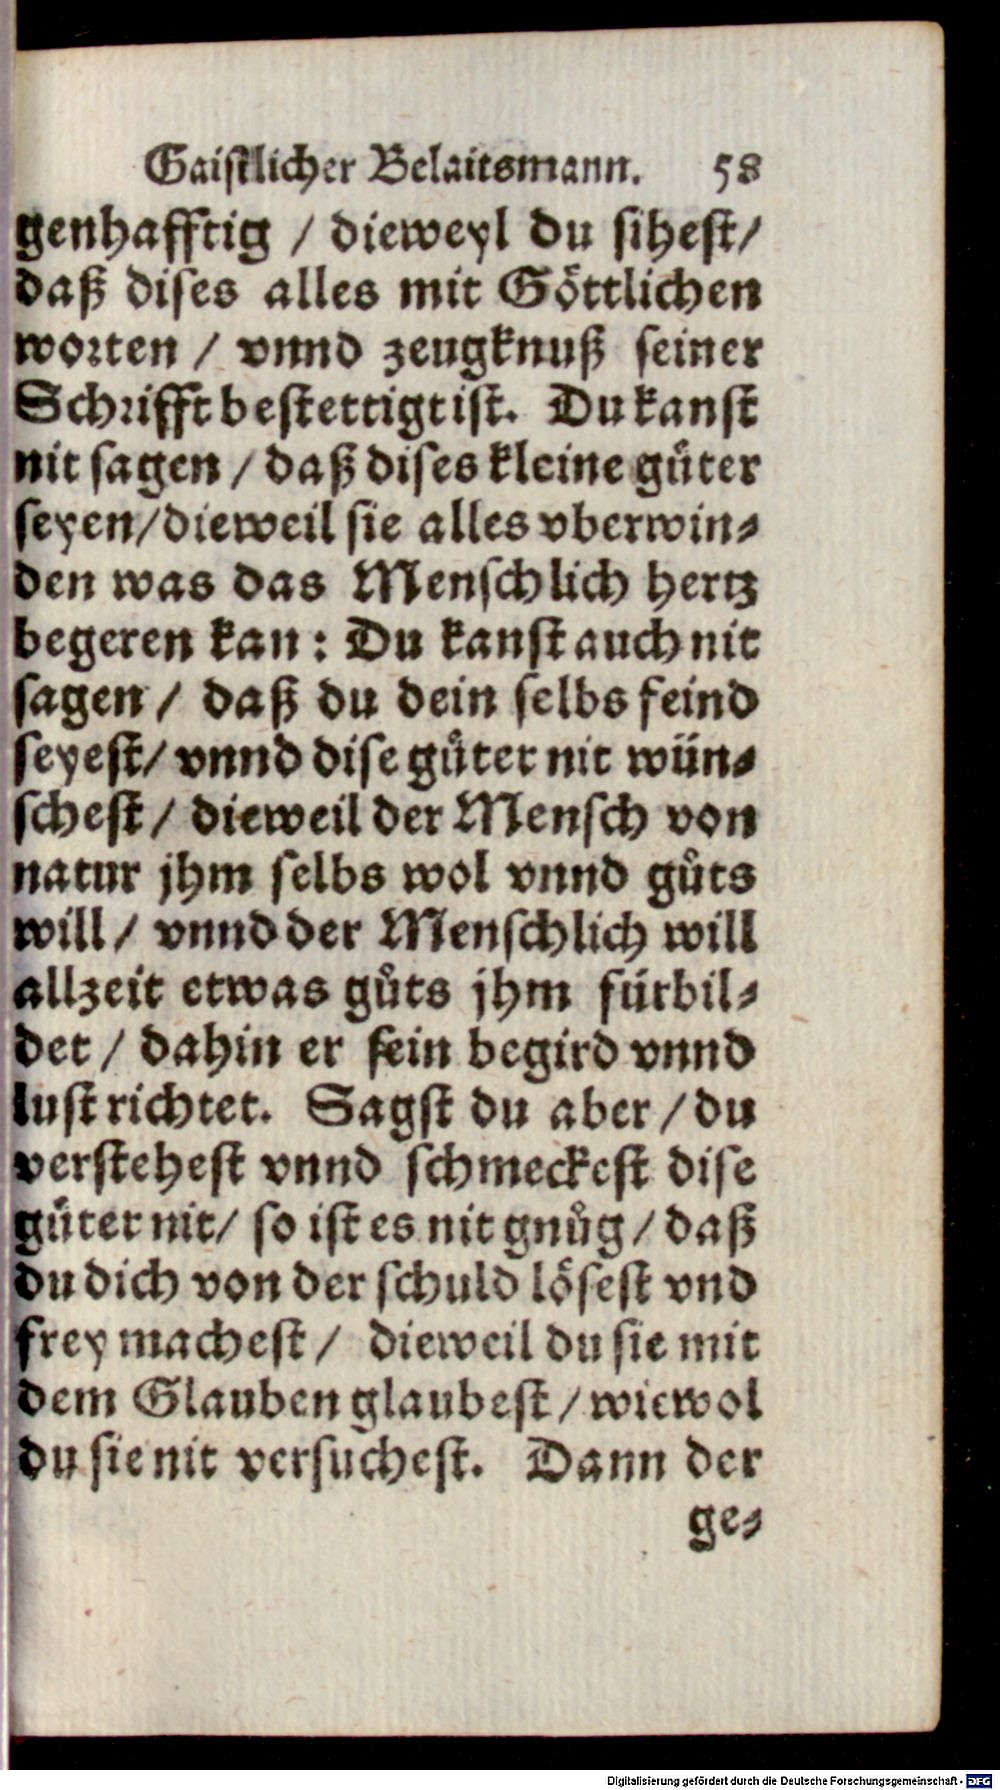 Gaistlicher Belaitsmann. 58
genhafftig / dieweyl du sihest/
daß dises alles mit Göttlichen
worten / vnnd zeugknuß seiner
Schrifft bestettigt ist. Du kanst
nit sagen / daß dises kleine gůter
seyen/dieweil sie alles vberwin-
den was das Menschlich hertz
begeren kan: Du kanst auch nit
sagen / daß du dein selbs feind
seyest/ vnnd dise gůter nit wün-
schest / dieweil der Mensch von
natur jhm selbs wol vnnd gůts
will / vnnd der Menschlich will
allzeit etwas gůts jhm fürbil-
det / dahin er sein begird vnnd
lust richtet. Sagst du aber / du
verstehest vnnd schmeckest dise
gůter nit/ so ist es nit gnůg / daß
du dich von der schuld lösest vnd
frey machest / dieweil du sie mit
dem Glauben glaubest / wiewol
du sie nit versuchest. Dann der
ge-
Digitalisierung gefördert durch die Deutsche Forschungsgemeinschaft - DFG